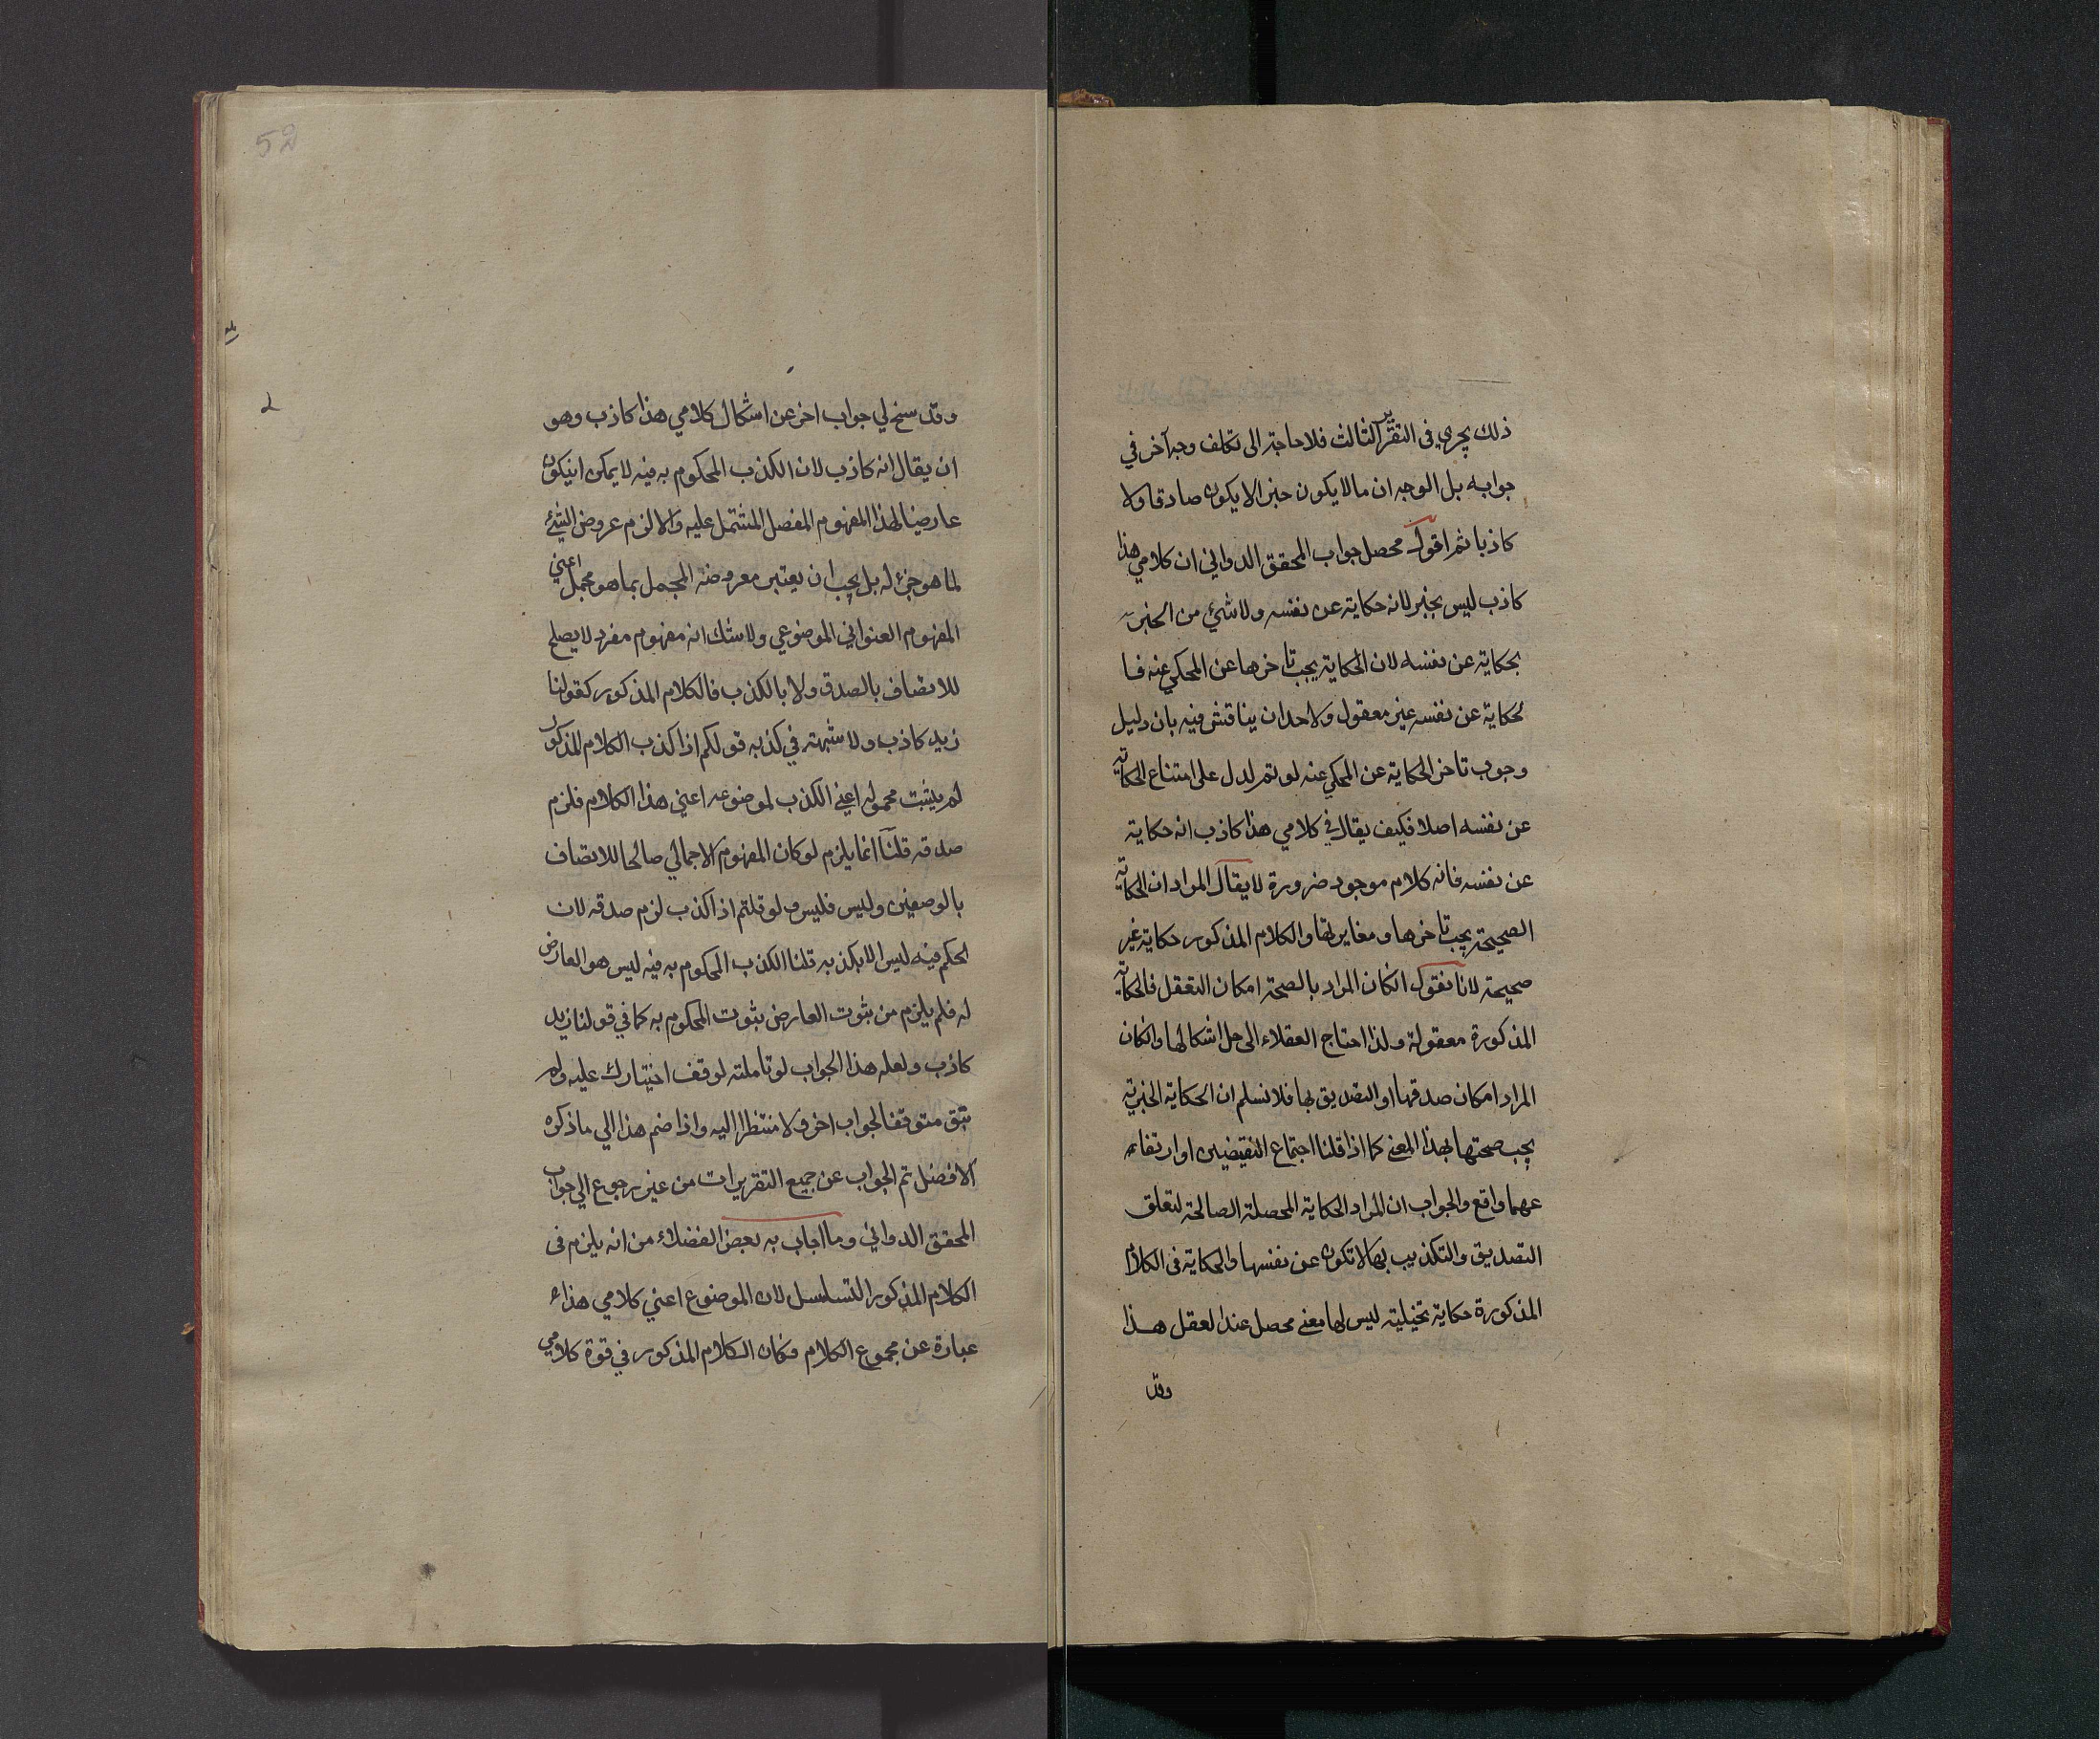 ذلك يجري في التقرير الثالث فلا حاجة الى تكلف وجه آخر في
جوابه بل الوجه ان ما لا يكون خبرا لا يكون صادقا ولا
كاذبا ثم اقول محصل جواب المحقق الدواني ان كلامي هذا
كاذب ليس بخبر لانه حكاية عن نفسه ولا شيء من الخبر
بحكاية عن نفسه لان الحكاية يجب تاخرها عن المحكي عنه فا
لحكاية عن نفسه غير معقول ولاحد ان يناقش فيه بان دليل
وجوب تاخر الحكاية عن المحكي عنه لو تم لدل على امتناع الحكاية
عن نفسه اصلا فكيف يقال في كلامي هذا كاذب انه حكاية
عن نفسه فانه كلام موجود ضرورة لا يقال المراد ان الحكاية
الصحيحة يجب تاخرها ومغايرتها والكلام المذكور حكاية غير
صحيحة لانا نقول انكان المراد بالصحة امكان التعقل فالحكاية
المذكورة معقولة ولذا احتاج العقلاء الى حل اشكالها وانكان
المراد امكان صدقها او التصديق بها فلا نسلم ان الحكاية الخبرية
يجب صحتها بهذا المعنى كما اذا قلنا اجتماع النقيضين او ارتفا
عهما واقع والجواب ان المراد الحكاية المحصلة الصالحة لتعلق
التصديق والتكذيب بها لا تكون عن نفسها والحكاية في الكلام
المذكورة حكاية تخيلية ليس لها معنى محصل عند العقل هذا
وقد
52
وقد سنح لي جواب اخر عن اشكال كلامي هذا كاذب وهو
ان يقال انه كاذب لان الكذب المحكوم به فيه لا يمكن انيكون
عارضا لهذا المفهوم المفصل المشتمل عليه والا لزم عروض الشئ
لما هو جزء له بل يجب ان يعتبر معروضه المجمل بما هو مجمل اعني
المفهوم العنواني الموضوعي ولا شك انه مفهوم مفرد لا يصلح
للاتصاف بالصدق ولا بالكذب فالكلام المذكور كقولنا
زيد كاذب ولا شبهة في كذبه قولكم اذا كذب الكلام المذكور
لم يثبت محموله اعني الكذب لموضوعه اعني هذا الكلام فلزم
صدقه قلنا انما يلزم لو كان المفهوم الاجمالي صالحا للاتصاف
بالوصفين وليس فليس ولو قلتم اذا كذب لزم صدقه لان
الحكم فيه ليس الا بكذبه قلنا الكذب المحكوم به فيه ليس هو العارض
له فلم يلزم من ثبوت العارض ثبوت المحكوم به كما في قولنا زيد
كاذب ولعله هذا الجواب لو تاملته لوقف اختيارك عليه ولم
تبق متوقفا لجواب اخر ولا منتظرا اليه واذا ضم هذا الي ما ذكره
الافضل تم الجواب عن جميع التقريرات من غير رجوع الي جواب
المحقق الدواني وما اجاب به بعض الفضلاء من انه يلزم في
الكلام المذكور التسلسل لان الموضوع اعني كلامي هذا
عبارة عن مجموع الكلام فكان الكلام المذكور في قوة كلامي